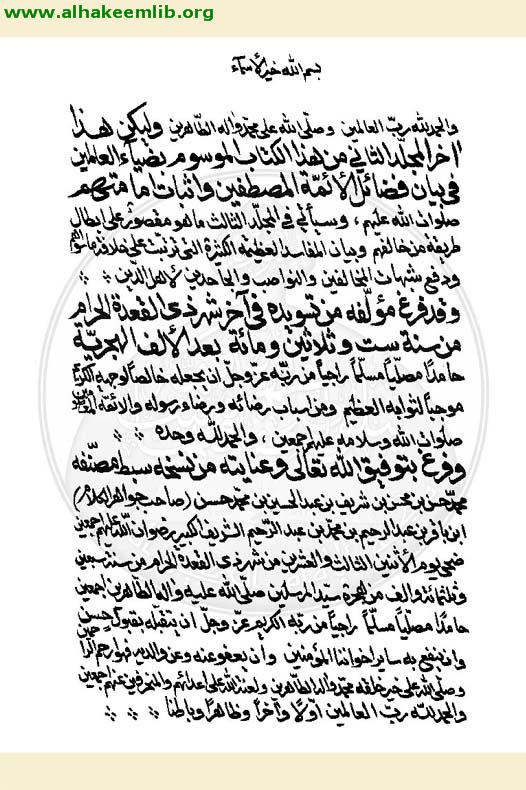 www.alhakeemlib.org
بسم الله خير الأسماء
والحمد لله ربّ العالمين وصلّى الله على محمّد وآله الطّاهرين وليكن هذا
آخر المجلّد الثاني من هذا الكتاب الموسوم بضياء العالمين
في بيان فضائل الأئمّة المصطفين وإثبات إمامتهم
صلوات الله عليهم ، وسيأتي في المجلّد الثالث ما هو مقصور على إبطال
طريقة من خالفهم وبيان المفاسد العظيمة الكثيرة التي ترتبت على خلافة
ودفع شبهات المخالفين والنواصب والجاحدين لأهل الدّين
وقد فرغ مؤلّفه من تسويده في آخر شهر ذي القعدة الحرام
من سنة ست وثلاثين ومائة بعد الألف الهجريّة
حامدًا مصلّيًا مسلّمًا راجيًا من ربّه عزّ وجلّ ان يجعله خالصًا لوجهه الكريم
موجبًا لثوابه العظيم ومن اسباب رضائه ورضاء رسوله والأئمّة
صلوات الله وسلامه عليهم اجمعين ، والحمد لله وحده
وفرغ بتوفيق الله تعالى وعنايته من نسخه سبط مصنّفه
محمّد حسن بن شريف بن عبد الحسين بن محمّد حسن (صاحب جواهر الكلام)
ابن باقر بن عبد الرحيم بن محمّد بن عبد الرّحيم الشريف الكبير رضوان الله عليهم اجمعين
ضحى يوم الأثنين الثالث والعشرين من شهر ذي القعدة الحرام من سنة سبعين
وثلثمائة والف من هجرة سيّد المرسلين صلّى الله عليه وآله الطّاهرين اجمعين
حامدًا مصلّيًا مسلّمًا راجيًا من ربّه الكريم عزّ وجلّ ان يتقبّله بقبول حسن
وان ينفع به سائر اخواننا المؤمنين وان يعفو عنه وعن والديه فهو ارحم الراحمين
وصلّى الله على خير خلقه محمّد وآله الطّاهرين ولعنة الله على اعدائهم والمنحرفين عنهم اجمعين
والحمد لله ربّ العالمين اوّلًا وآخرًا وظاهرًا وباطنًا